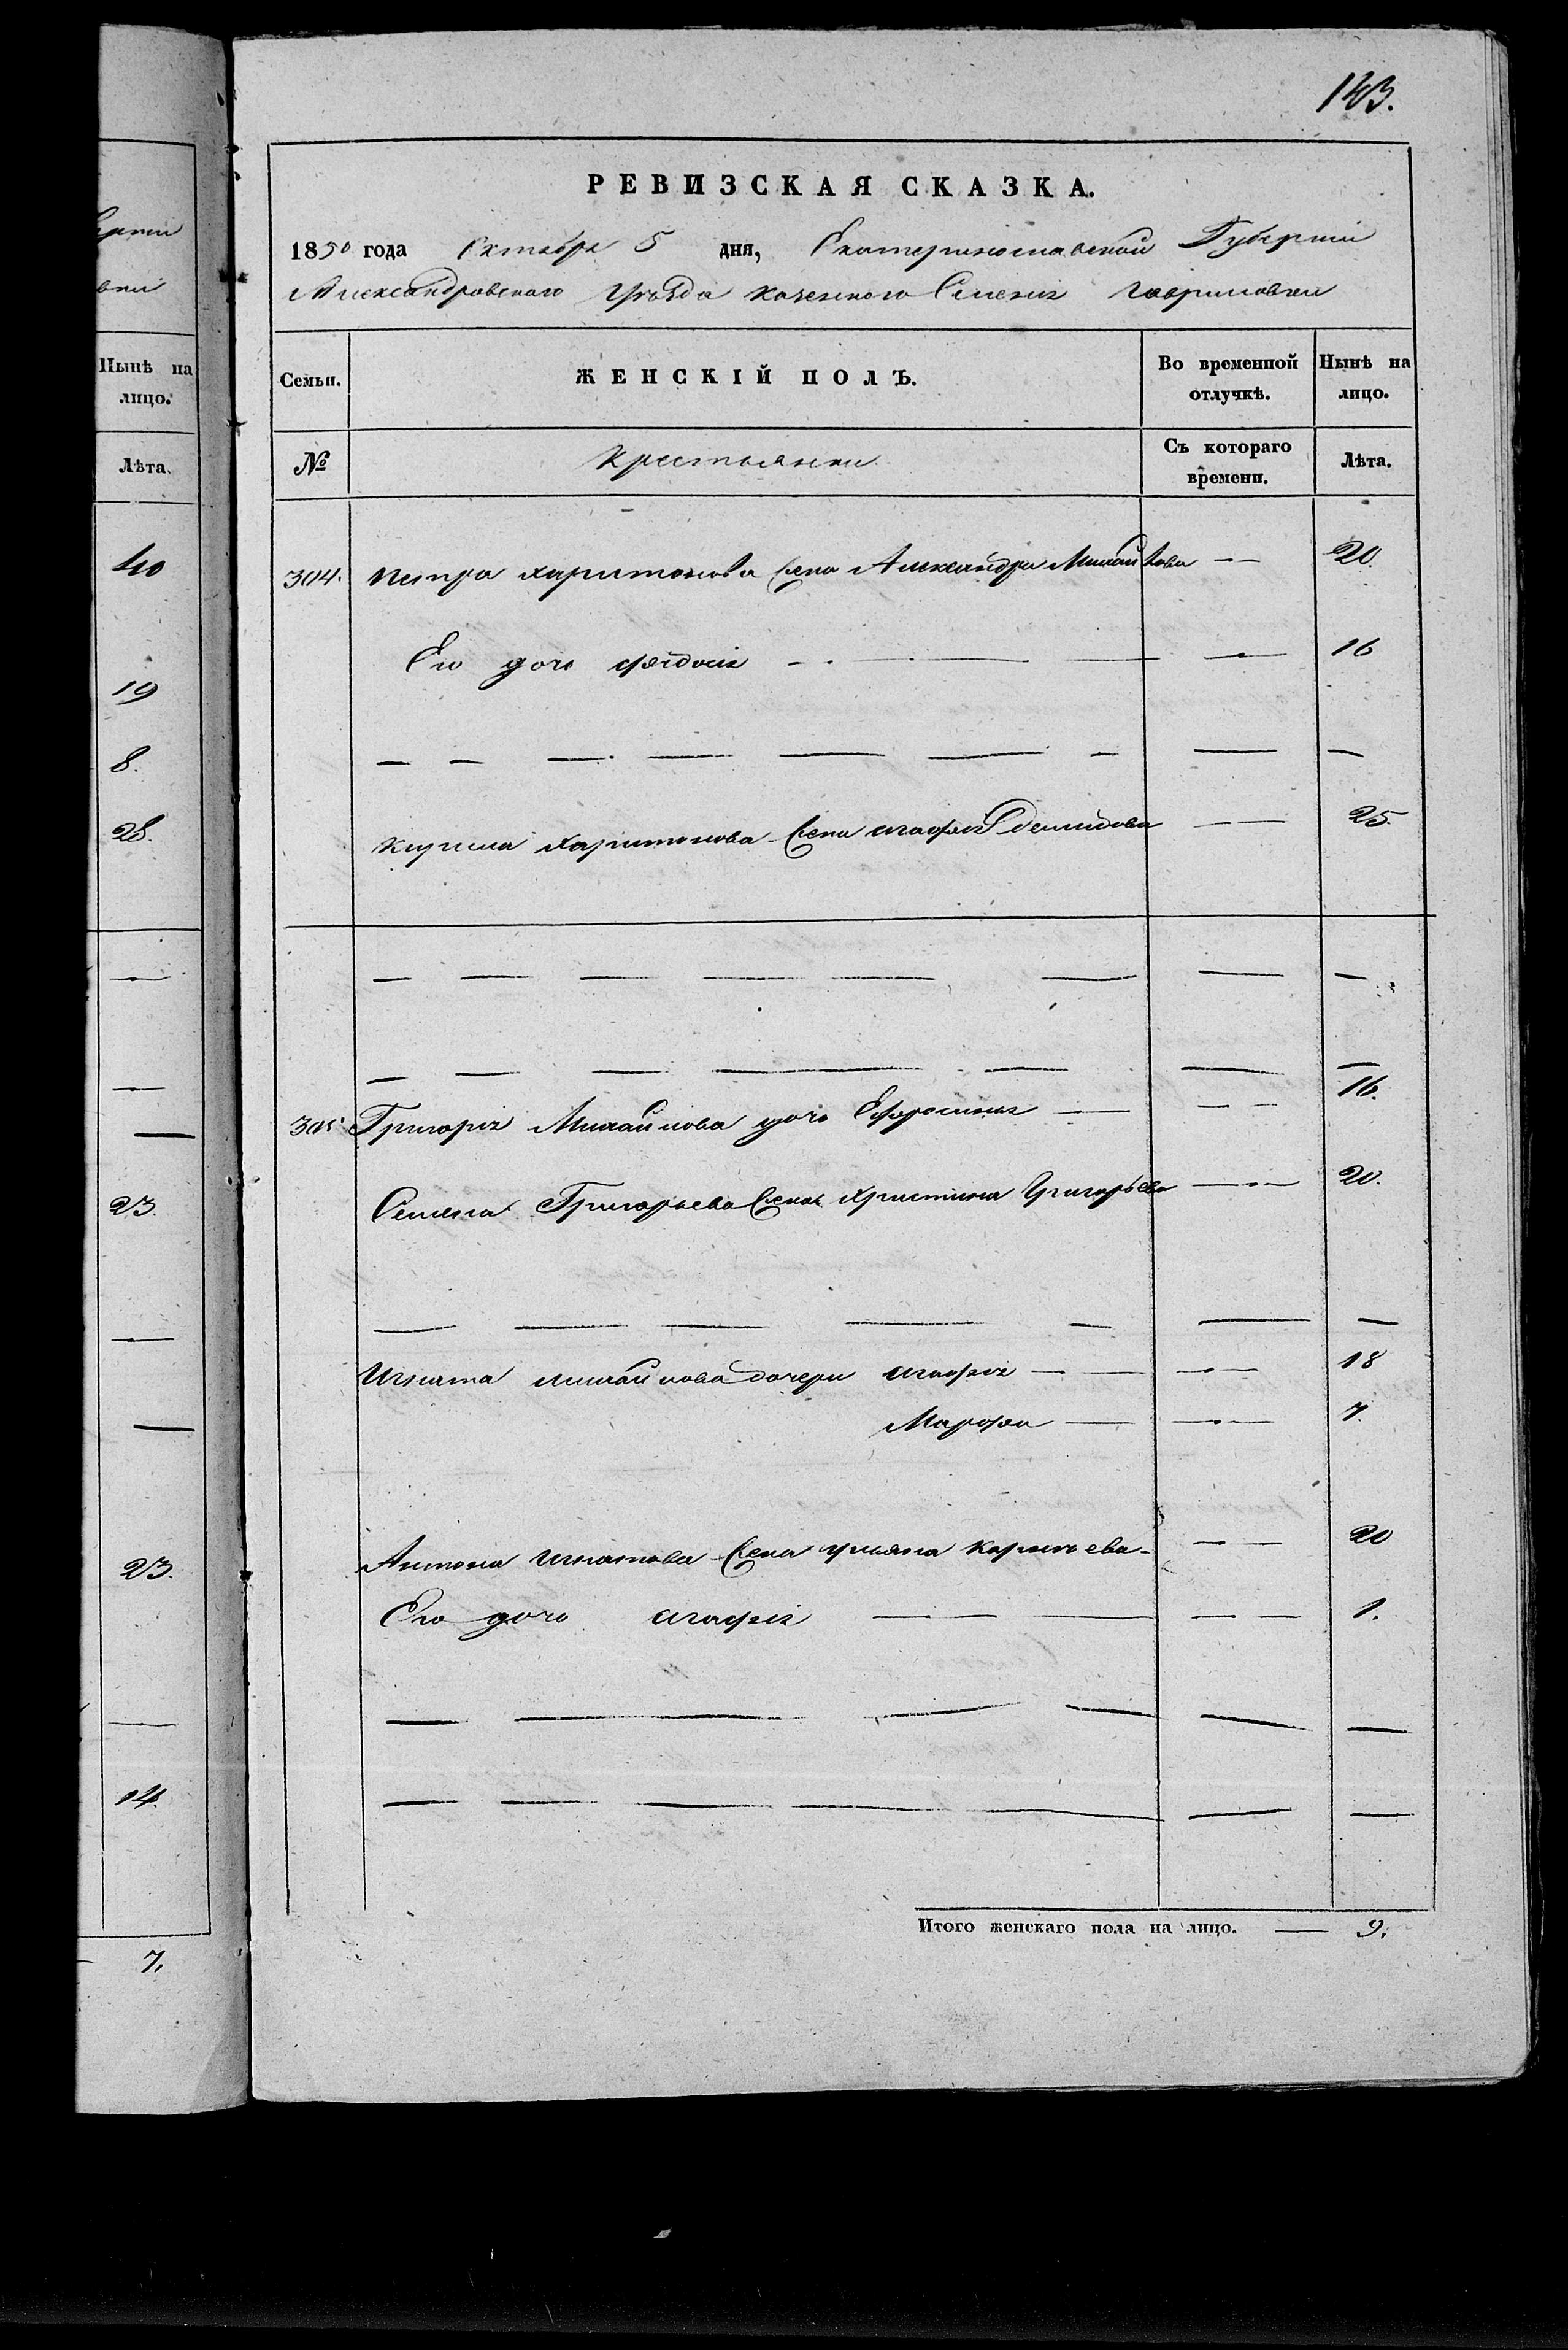 ерніи
вки
Нынѣ на
лицо.
Лѣта.
40
19
8.
28.
23.
23.
14.
7.
143.
РЕВИЗСКАЯ СКАЗКА.
1850 года Октября 5 дня, Екатеринославской Губерніи
Александровскаго Уѣзда казенного Селенія Гавриловки
Семьи.
ЖЕНСКІЙ ПОЛЪ.
Во временной отлучкѣ.
Нынѣ на лицо.
№
Крестьянки
Съ котораго времени.
Лѣта.
304. Петра Харитонова жена Александра Михайлова — 20.
Его дочь Феодосія — 16
Кирила Харитонова жена Агафія Демидова — 25.
305 Григорія Михайлова дочь Ефросинія — 16.
Семена Григорьева жена Христина Григорьева — 20.
Игната Михайлова дочери Агафія — 18
Марфа — 7.
Антона Игнатова жена Ульяна — 20
Его дочь Агафія — 1.
Итого женскаго пола на лицо. — 9.